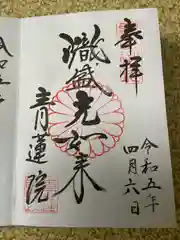 奉拝
熾盛光如来
青蓮院
令和五年
四月六日